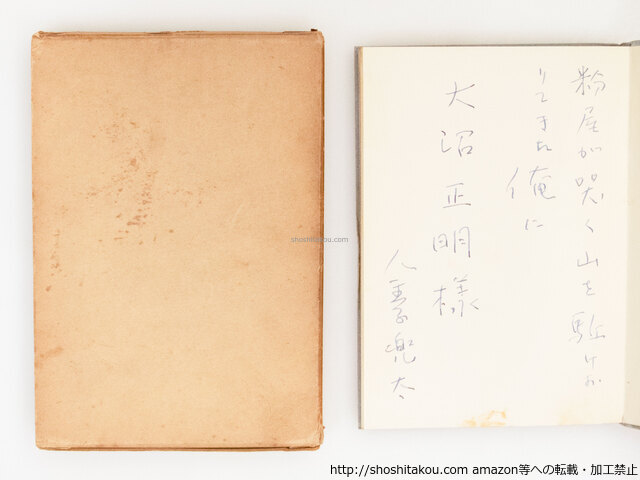 粉屋が哭く山を駈けお
りてきた俺に
大沼正明様
金子兜太
shoshitakou.com
http://shoshitakou.com amazon等への転載・加工禁止